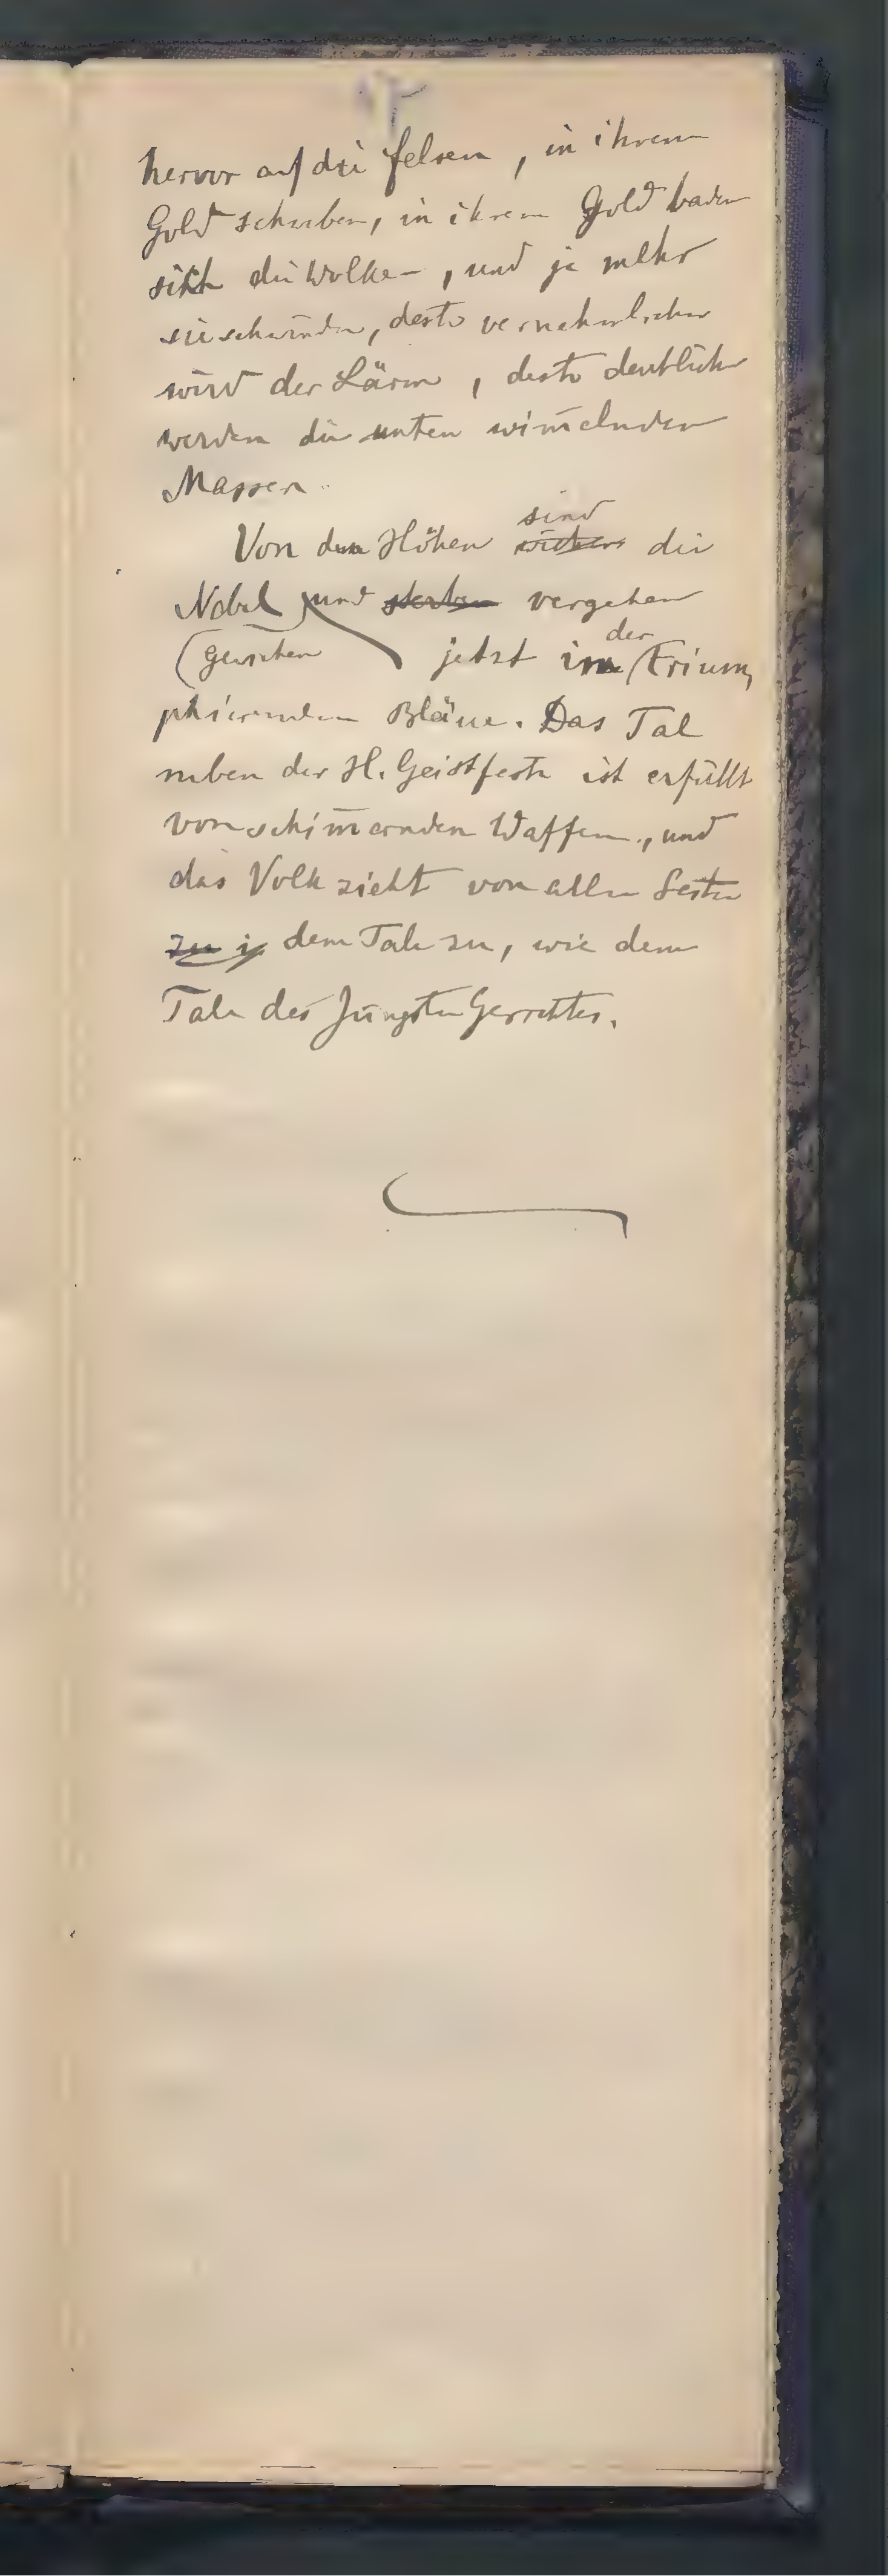 hervor auf die Felsen, in ihrem
Gold schweben, in ihrem Gold baden
sich die Wolken, und je mehr
sie schwinden, desto vernehmlicher
wird der Lärm, desto deutlicher
werden die unten wim̅elnden
Massen.
sind
Von den Höhen weichen die
Nebel und sterben vergehen
(gewichen jetzt in der Trium-
phierenden Bläue. Das Tal
neben der H. Geistfeste ist erfüllt
von schim̅ernden Waffen, und
das Volk zieht von allen Seiten
zu dem Tale zu, wie dem
Tale des Jüngsten Gerichtes.